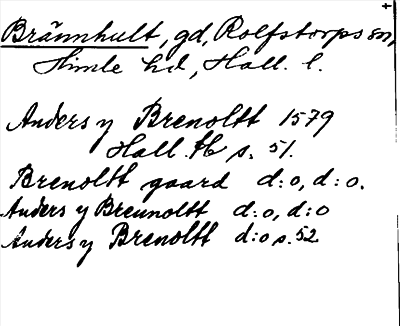 Brännhult, gd, Rolfstorps sn,
Himle hd, Hall. l.
Anders y Brenoltt 1579
Hall. Hb s. 51.
Brenoltt gaard d:o, d:o.
Anders y Breunoltt d:o, d:o
Anders y Brenoltt d:o s. 52